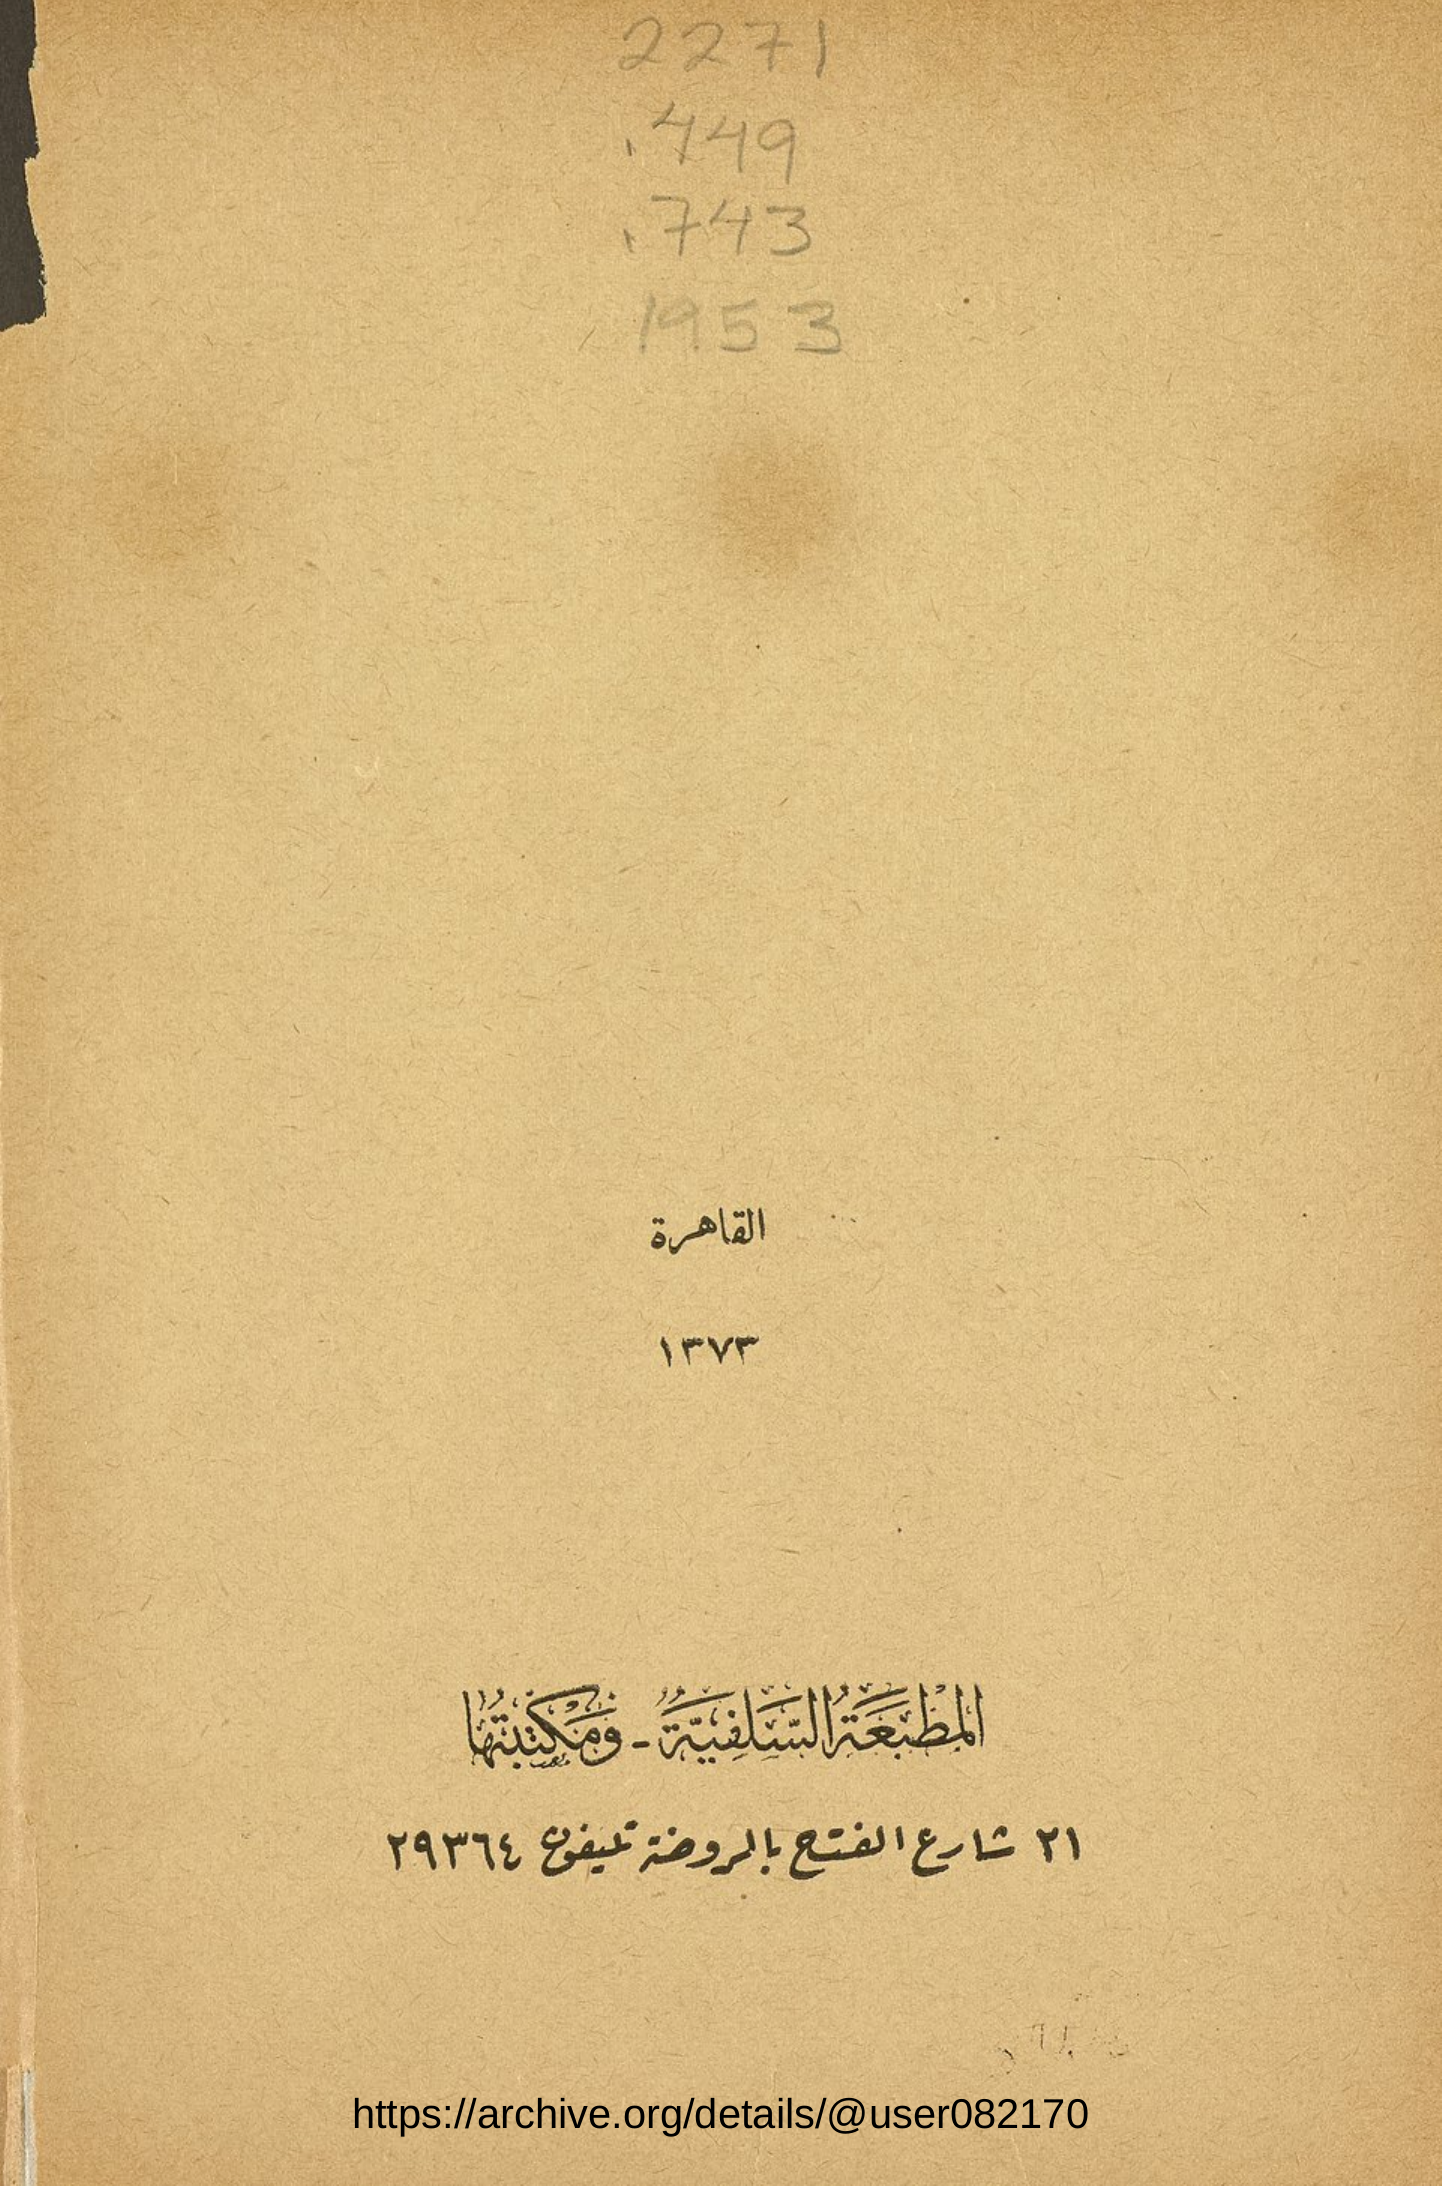 2271
.449
.743
1953
القاهرة
١٣٧٣
المَطْبَعَةُ السَّلَفِيَّةُ - وَمَكْتَبَتُهَا
٢١ شارع الفتح بالروضة تليفون ٢٩٣٦٤
https://archive.org/details/@user082170